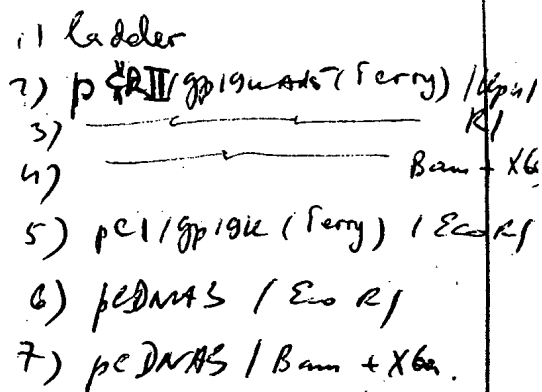 1) ladder
2) pCRII/gp19K (Terry) / KpnI
3) RI
4) Bam + Xba
5) pCI/gp19K (Terry) / EcoRI
6) pcDNA3 / Eco RI
7) pcDNA3 / Bam + Xba.